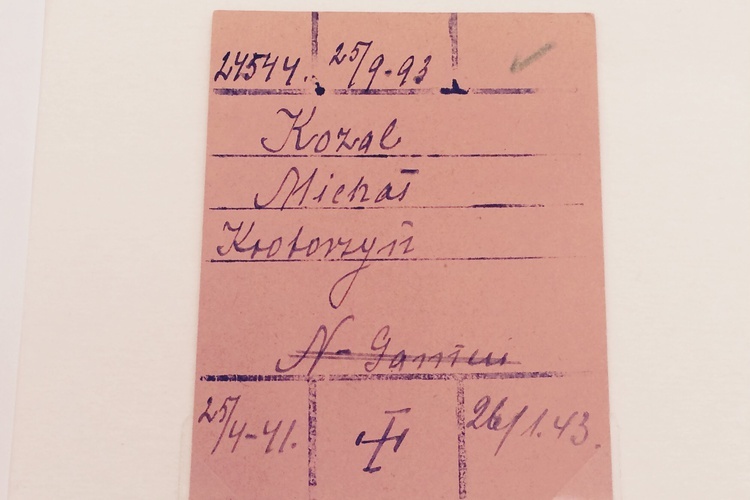 24544. 25/9-93
Kozal
Michał
Krotorzyń
25/4-41. 26/1.43.